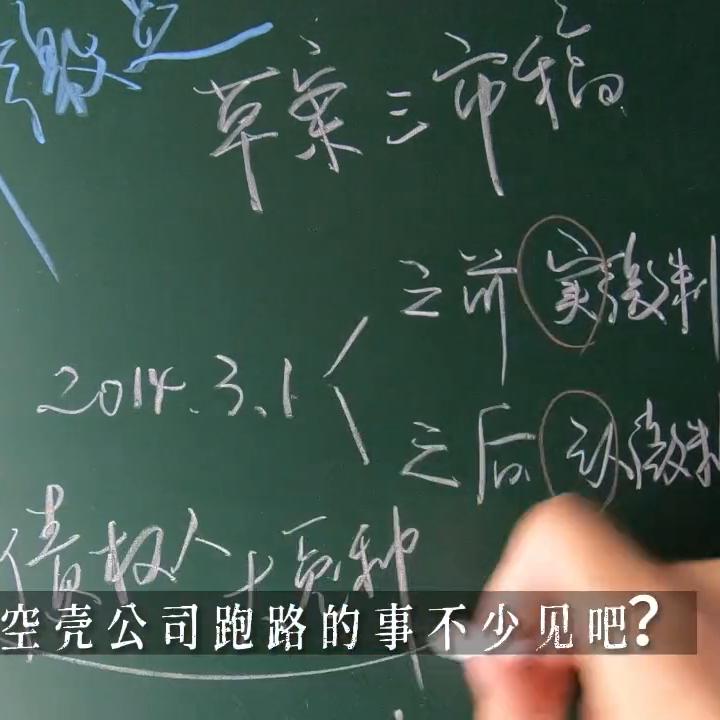 缴
草案三审稿
之前 实缴制
2014.3.1
之后 认缴制
债权人
空壳公司跑路的事不少见吧？